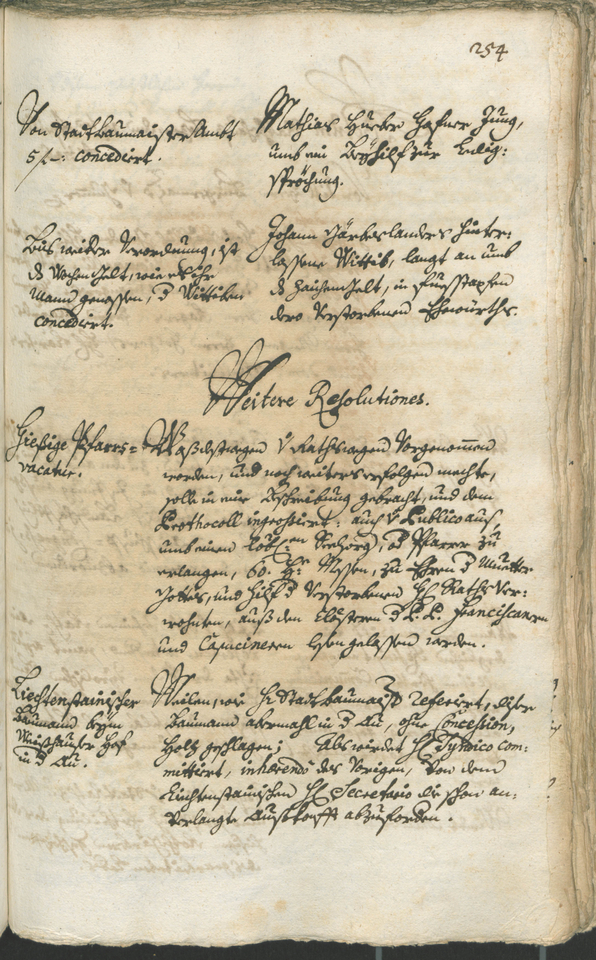 254
Von Stattbaumaister Ambt
5 f -: concediert.
Mathias Hueber Hafner Jung,
umb ein Beyhilf zur Ledig:
sprechung.
Bis weiter Verordnung, ist
dz Wochengelt, wie es ihr
Mann genossen, d Wittiben
concediert.
Johann hinter:
lassene Wittib, langt an umb
dz in Fuesstapfen
dero Verstorbenen Ehewürths.
Weitere Resolutiones.
Hießige Pfarrs=
vacatur.
Waß desswegen V Rathswegen Vorgenommen
worden, und noch weiters erfolgen mechte,
solle in eine Beschreibung gebracht, und dem
Prothocoll ingrossiert: auch V Publico aus,
umb einen Seelsorg, od Pfarrer zu
erlangen, 60. H: Messen, zu Ehren d Muetter
Gottes, und Hilf d Verstorbenen H Raths Ver:
wohnten, auß den Clöstern d P.P. Franciscanern
und Capucinern lesen gelassen werden.
Liechtenstainischer
Baumann beym
Hof
in d Au.
Weilen, wie H: Stattbaumaister referirt, diser
Baumann abermahl in d Au, ohne Concession,
Holz geschlagen; Als wirdet H Syndico com:
mittirt, inhaerendo des Vorigen, Von dem
Liechtenstainischen H Secretario die schon an:
Verlangte Auskonfft abzufordern.